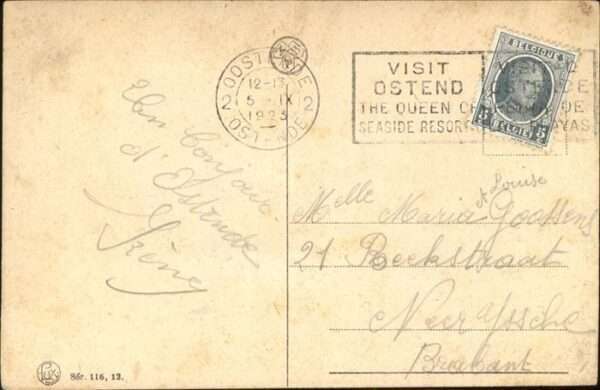 OOSTENDE
12-13
2 5 - IX 2
1923
OSTENDE
VISIT
OSTEND
THE QUEEN OF
SEASIDE RESORTS
BELGIQUE
5 5
BELGIË
Un bonjour
d'Ostende
Irène
& Louise
Melle Maria Goossens
21 Beekstraat
Neer Yssche
Brabant
Sér. 116, 12.